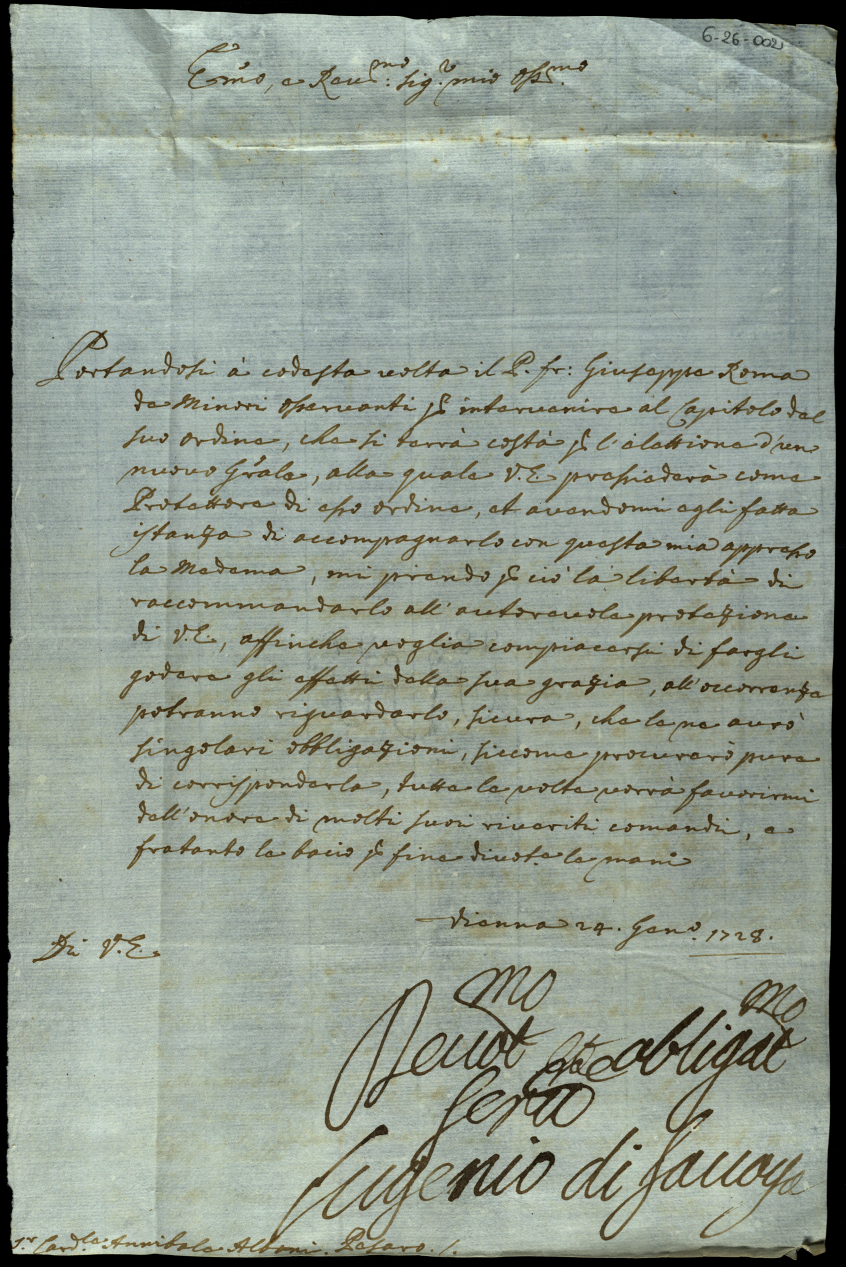 6-26-002
Emo, e Reu.mo sig.r mio oss.mo
Portandosi à codesta volta il P. fr: Giuseppe Roma
de Minori osseruanti p intervenire al Capitolo del
suo ordine, che si terrà costà p l'elettione d'un
nuovo Grale, alla quale V.E. presiederà come
Protettore di esso ordine, et avendomi egli fatta
istanza di accompagnarlo con questa mia appresso
la Medema, mi prendo p ciò la libertà di
raccommandarlo all'autorevole protezione
di V.E., affinche voglia compiacersi di fargli
godere gli effetti della sua grazia, all'occorrenze
potranno riguardarlo, sicura, che le ne aurò
singolari obbligazioni, siccome procurerò pure
di corrisponderla, tutte le volte vorrà favorirmi
dell'onore di molti suoi riveriti comandi, e
fratanto le bacio p fine divot.e le mani
Vienna 24. Gen.o 1728.
Di V.E.
Deuot.mo et obligat.mo
Seruo
Eugenio di Sauoya
S.r Card.le Annibale Albani. Pesaro. /.